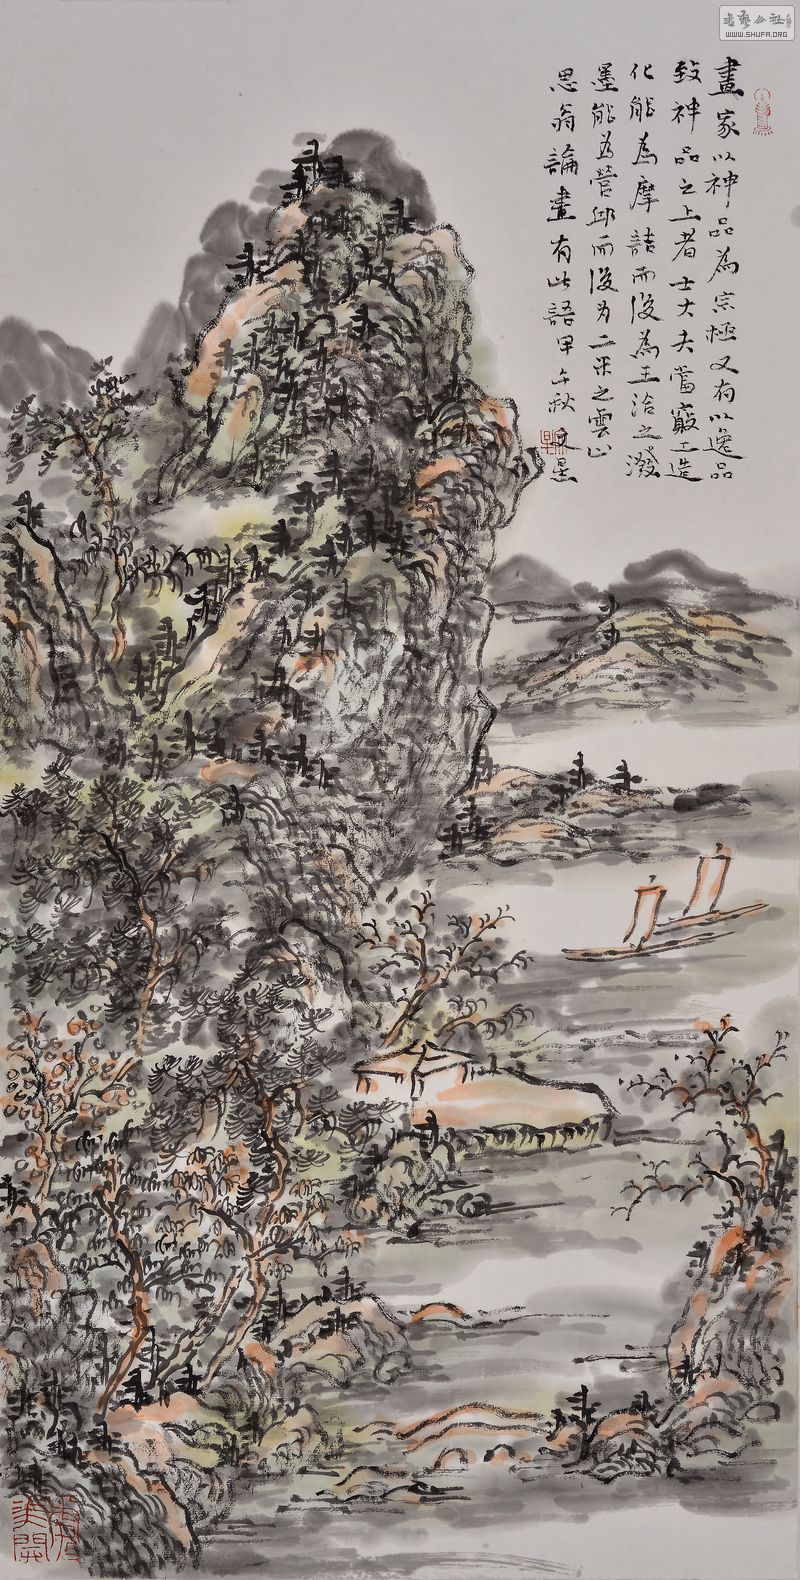 畫家以神品為宗極又有以逸品
致神品之上者士大夫當窮工造
化能為摩詰而後為王洽之潑
墨能為營邱而後為二米之雲山
思翁論畫有此語甲午秋文墨
WWW.SHUFA.ORG